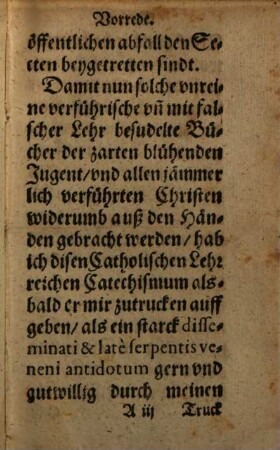 Vorrede.
öffentlichen abfall den Se-
cten beygetretten sindt.
Damit nun solche vnrei-
ne verführische vñ mit fal-
scher Lehr besudelte Bü-
cher der zarten blühenden
Jugent/ vnd allen jämmer
lich verführten Christen
widerumb auß den Hän-
den gebracht werden/ hab
ich disen Catholischen Lehr
reichen Catechismum als-
bald er mir zutrucken auff
geben/ als ein starck disse-
minati & latè serpentis ve-
neni antidotum gern vnd
gutwillig durch meinen
A iij Truck